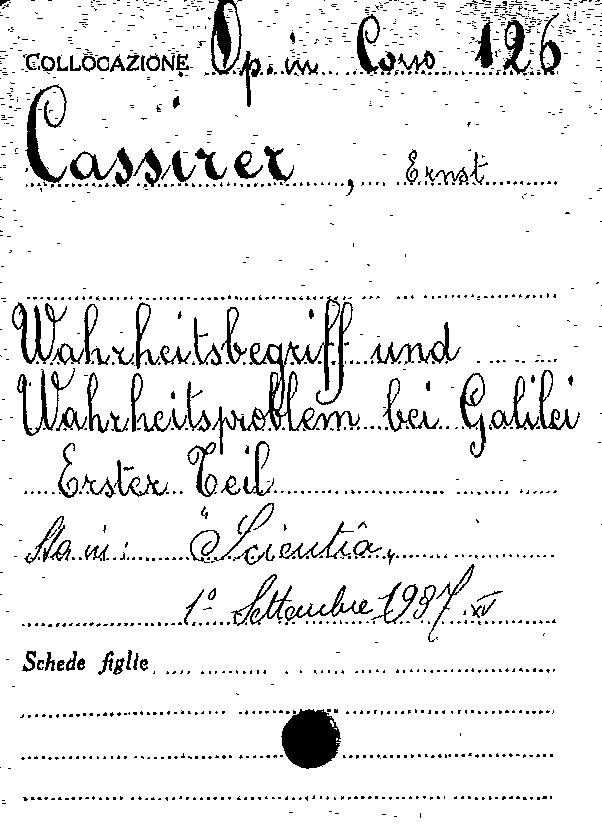 COLLOCAZIONE Op. in Corso 126
Cassirer, Ernst
Wahrheitsbegriff und
Wahrheitsproblem bei Galilei
Erster Teil
Sta in: "Scientia"
1º Settembre 1937 XV
Schede figlie